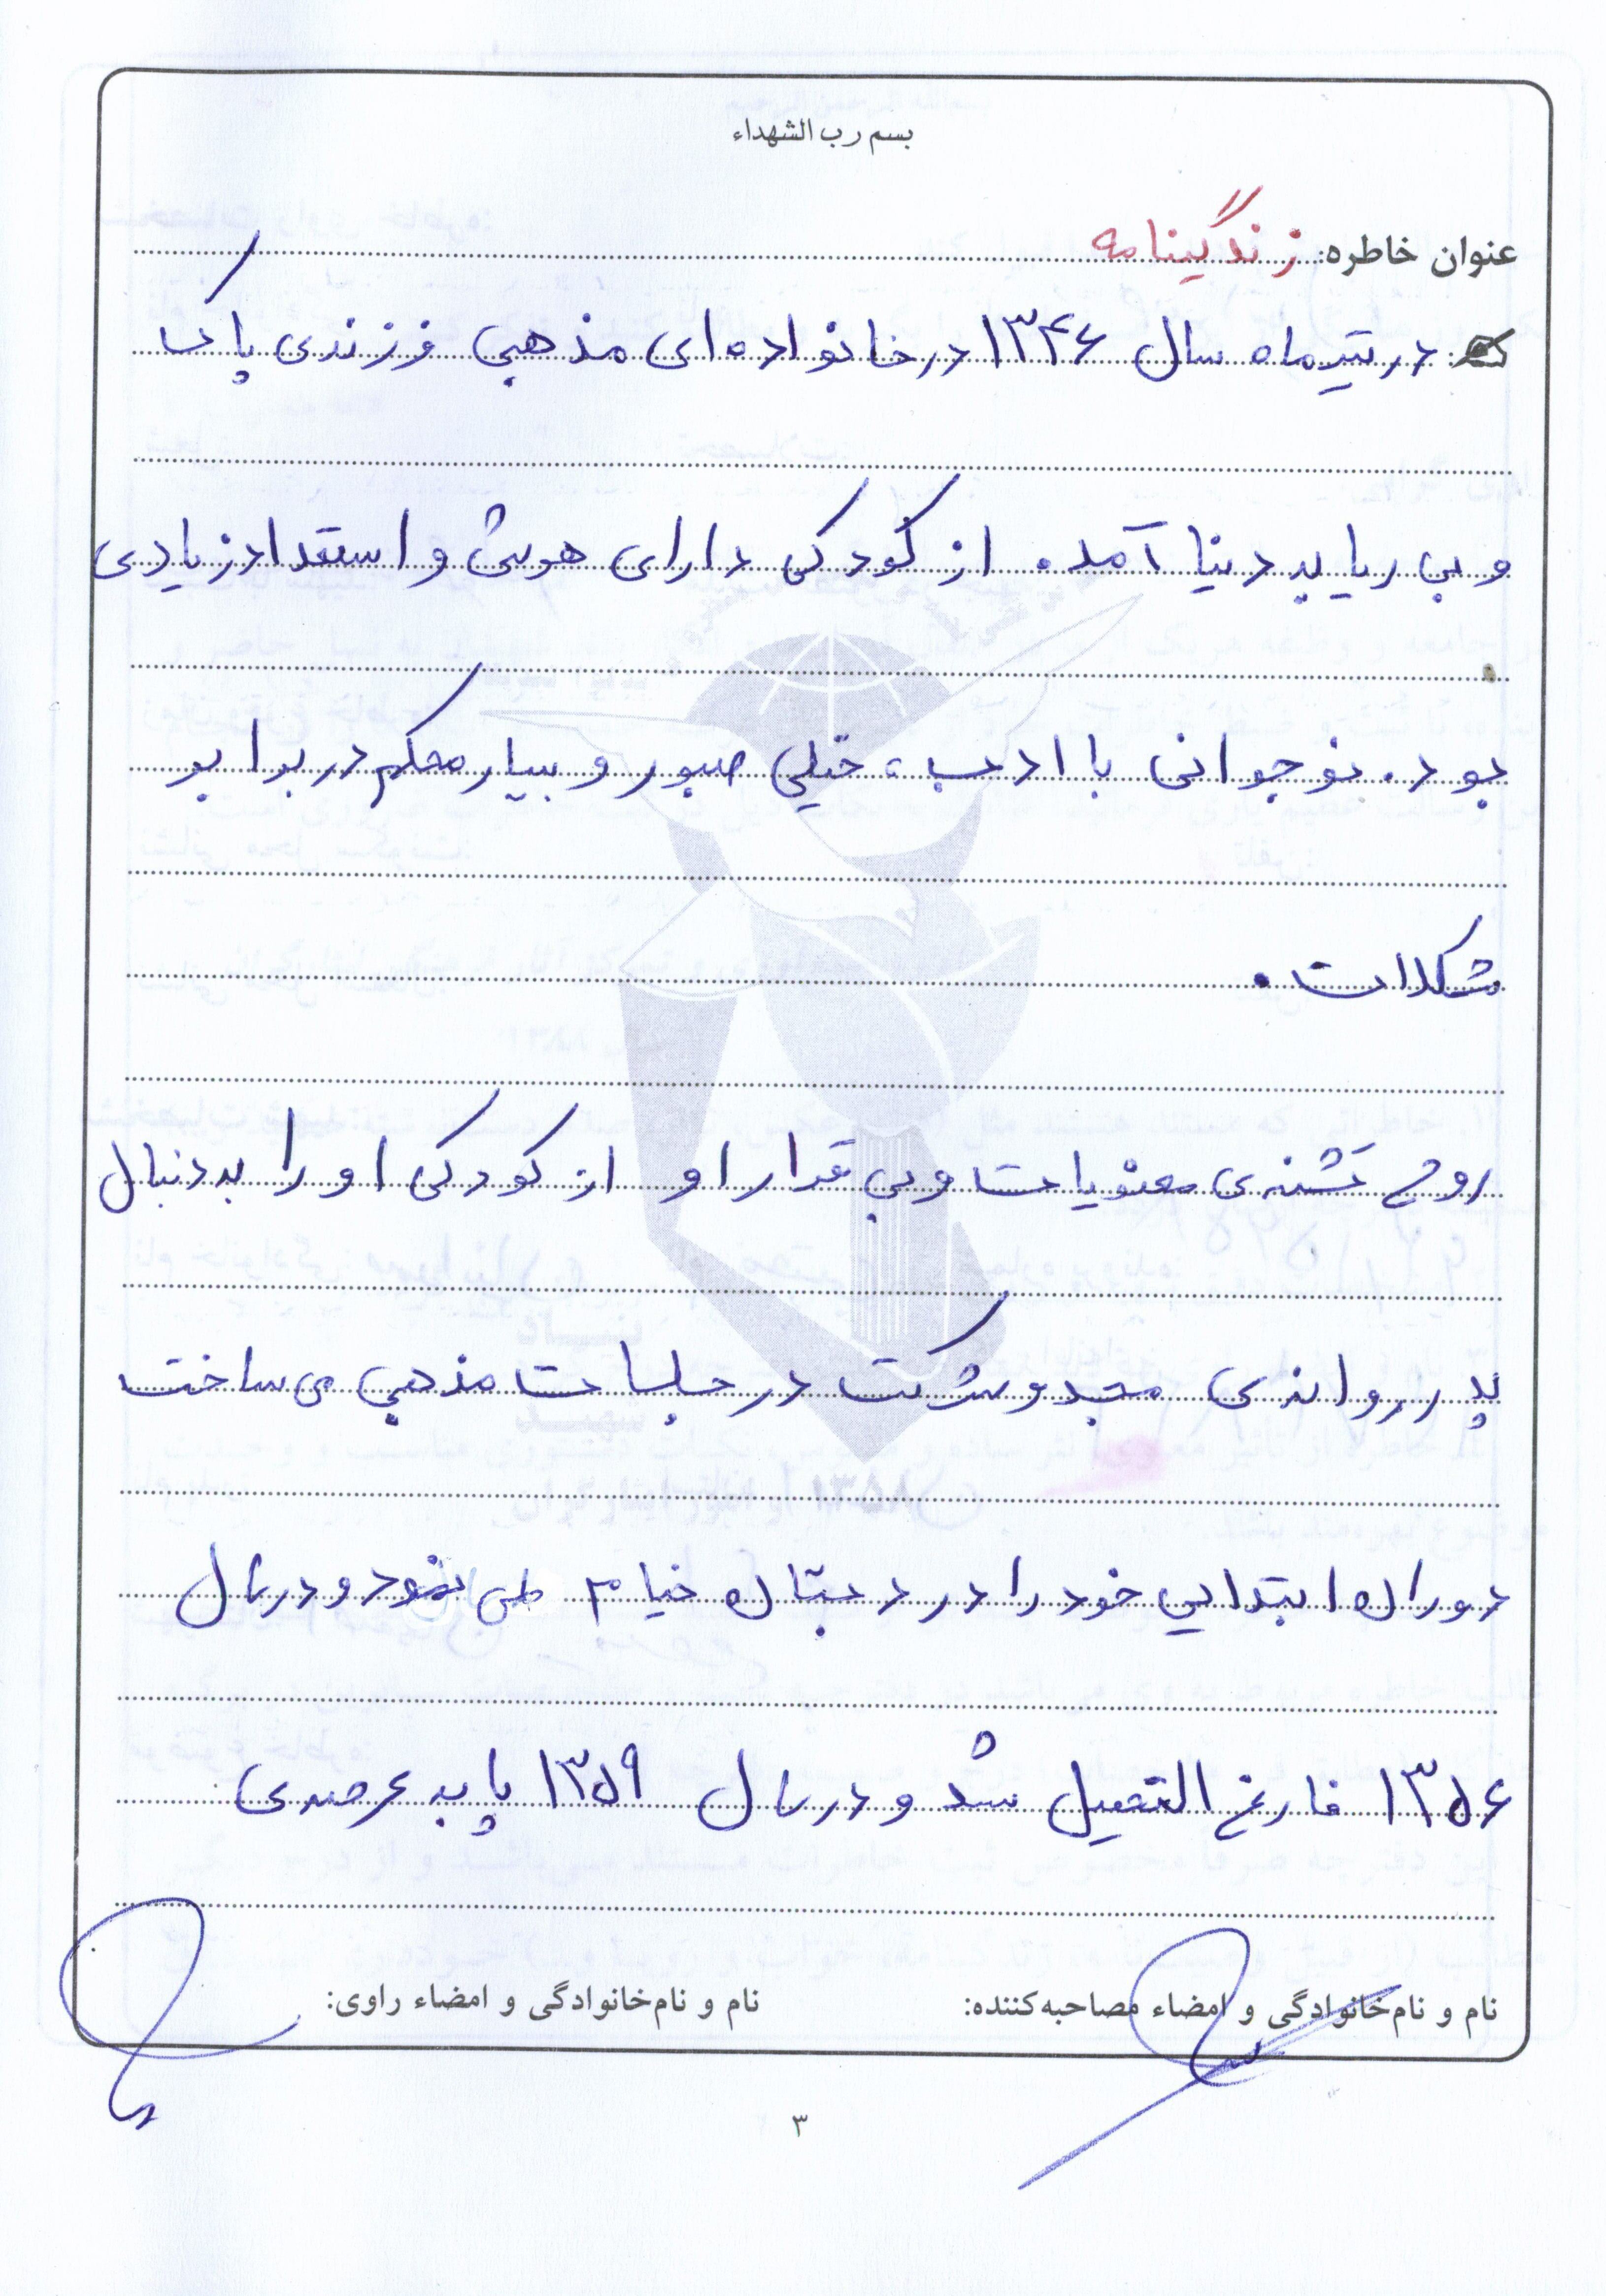 بسم رب الشهداء
عنوان خاطره: زندگینامه
در تیرماه سال ۱۳۴۶ در خانواده ای مذهبی فرزندی پاک
و بی ریا به دنیا آمد. از کودکی دارای هوش و استعداد زیادی
بود. نوجوانی با ادب، خیلی صبور و بسیار محکم در برابر
مشکلات.
روح تشنه ی معنویات و بی قرار او از کودکی او را به دنبال
پدر روانه ی مسجد و شرکت در جلسات مذهبی می ساخت
دوران ابتدایی خود را در دبستان خیام طی نمود و در سال
۱۳۵۶ فارغ التحصیل شد و در سال ۱۳۵۹ پا به عرصه ی
نام و نام‌خانوادگی و امضاء مصاحبه‌کننده: نام و نام‌خانوادگی و امضاء راوی:
۳